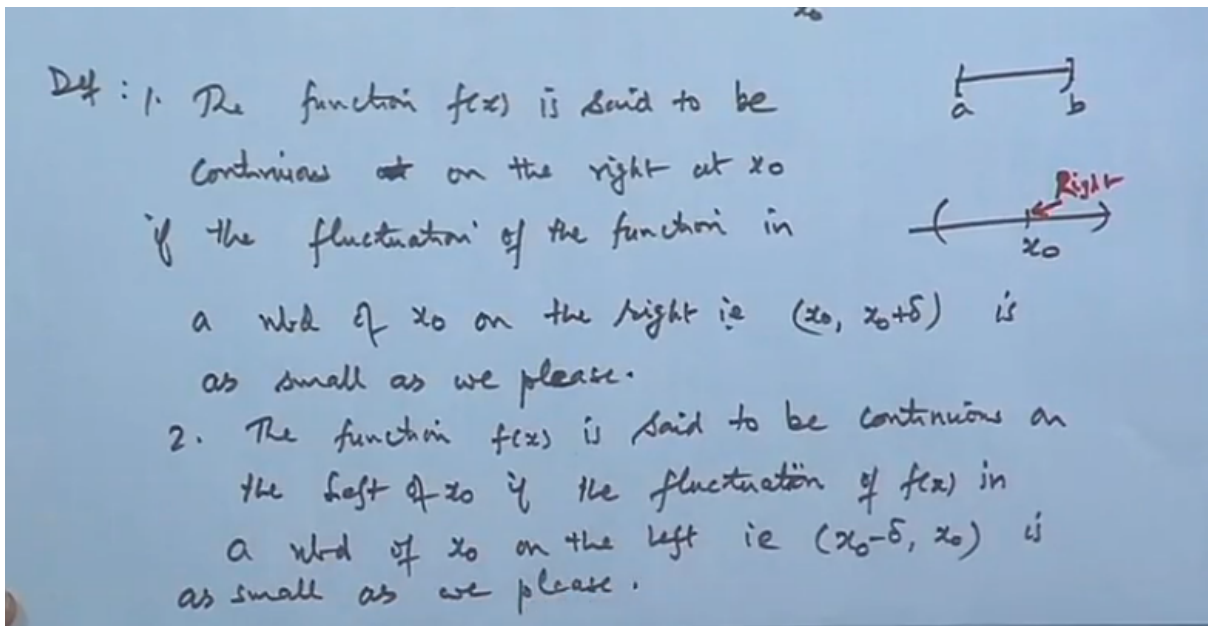 x₀
Def : 1. The function f(x) is said to be
a b
continuous on the right at x₀
Right
if the fluctuation of the function in
x₀
a nbd of x₀ on the right ie (x₀, x₀+δ) is
as small as we please.
2. The function f(x) is said to be continuous on
the Left of x₀ if the fluctuation of f(x) in
a nbd of x₀ on the left ie (x₀-δ, x₀) is
as small as we please.